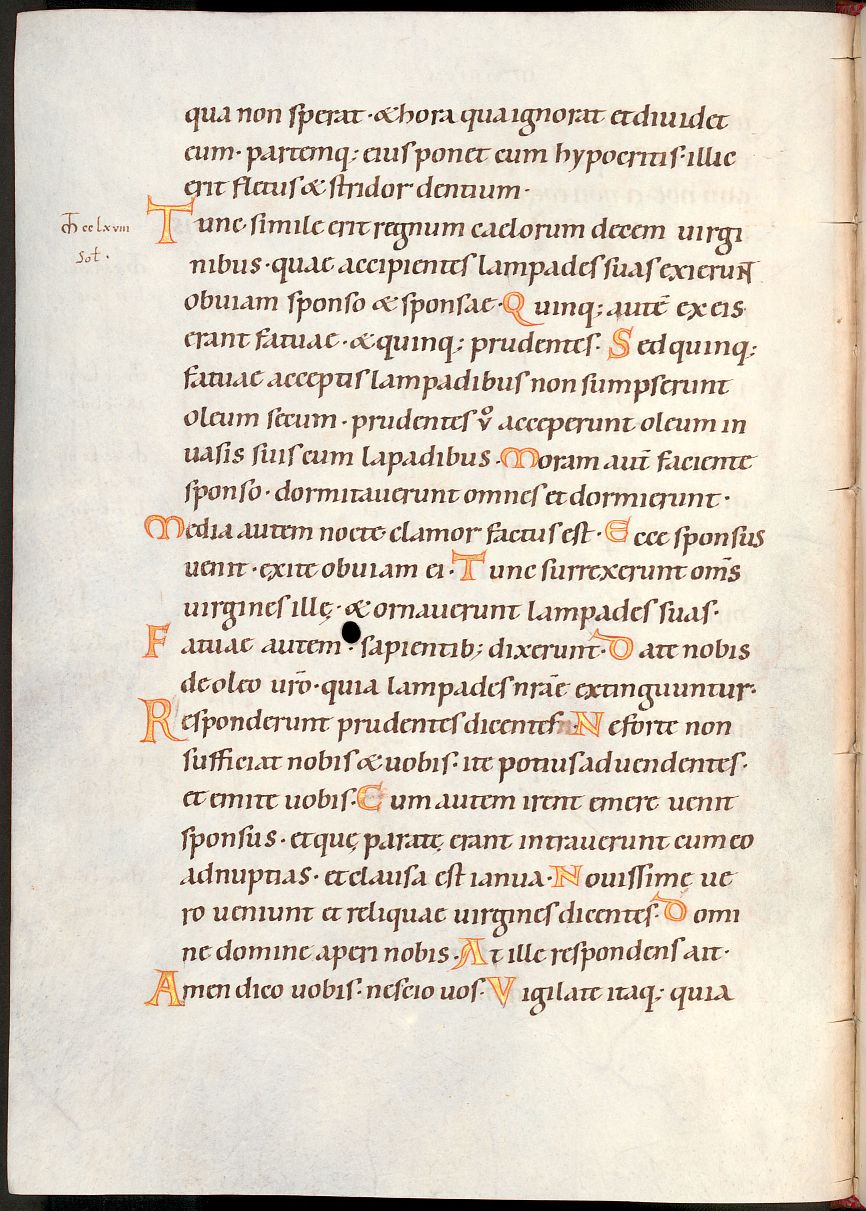 qua non sperat · & hora qua ignorat et diuidet
eum · partemq; eius ponet cum hypocritis · illic
erit fletus & stridor dentium ·
cclxviii
Sol ·
Tunc · simile erit regnum caelorum decem uirgi
nibus · quae accipientes lampades suas exierunt
obuiam sponso & sponsae · Quinq; autē ex eis
erant fatuae · & quinq; prudentes · Sed quinq;
fatuae acceptis lampadibus non sumpserunt
oleum secum · prudentes v̊ acceperunt oleum in
uasis suis cum lapadibus · Moram aut̄ faciente
sponso · dormitauerunt omnes et dormierunt ·
Media autem nocte clamor factus est · Ecce sponsus
uenit · exite obuiam ei · Tunc surrexerunt om̄s
uirgines illę · & ornauerunt lampades suas ·
Fatuae autem · sapientib; dixerunt · Date nobis
de oleo ur̄o · quia lampades nr̄ae extinguuntur ·
Responderunt prudentes dicentes · Ne forte non
sufficiat nobis & uobis · ite potius ad uendentes ·
et emite uobis · Cum autem irent emere uenit
sponsus · et quę paratę erant intrauerunt cum eo
ad nuptias · et clausa est ianua · Nouissimę ue
ro ueniunt et reliquae uirgines dicentes · Domi
ne domine aperi nobis · At ille respondens ait ·
Amen dico uobis · nescio uos · Vigilate itaq; quia